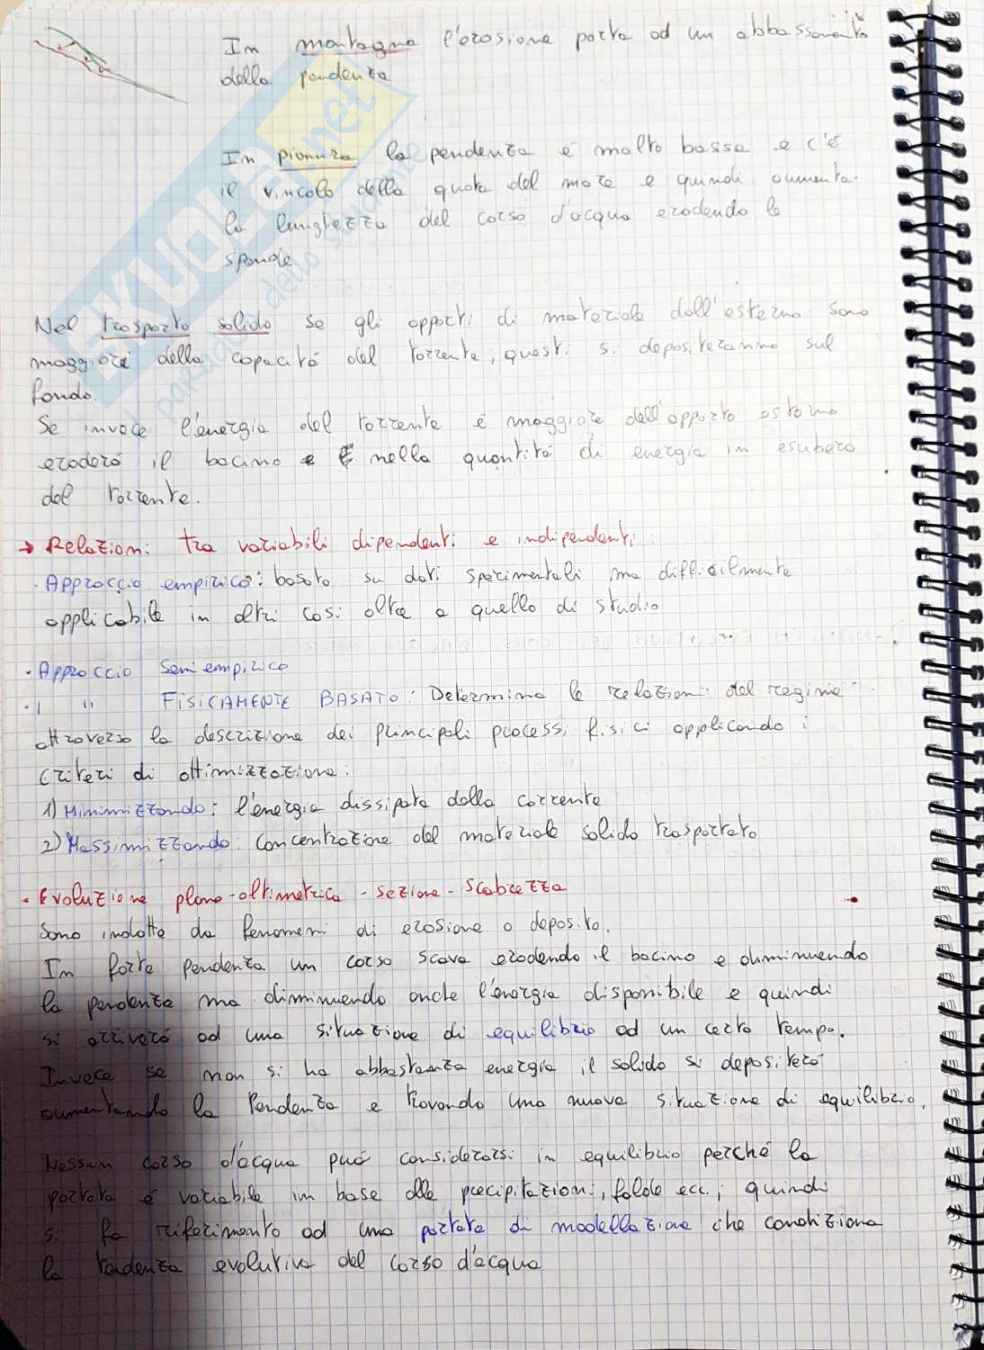 In montagna l'erosione porta ad un abbassamento
della pendenza
In pianura la pendenza è molto bassa e c'è
il vincolo della quota del mare e quindi aumenta
la lunghezza del corso d'acqua erodendo le
sponde
Nel trasporto solido se gli apporti di materiale dall'esterno sono
maggiori della capacità del torrente, questi si depositeranno sul
fondo.
Se invece l'energia del torrente è maggiore dell'apporto esterno
eroderà il bacino e È nella quantità di energia in esubero
del torrente.
→ Relazioni tra variabili dipendenti e indipendenti
· Approccio empirico: basato su dati sperimentali ma difficilmente
applicabile in altri casi oltre a quello di studio
· Approccio Semi empirico
· " " FISICAMENTE BASATO: Determina le relazioni del regime
attraverso la descrizione dei principali processi fisici applicando i
criteri di ottimizzazione:
1) Minimizzando: l'energia dissipata dalla corrente
2) Massimizzando: concentrazione del materiale solido trasportato
· Evoluzione plano-altimetrica - sezione - Scabrezza
Sono indotte da fenomeni di erosione o deposito.
In forte pendenza un corso scava erodendo il bacino e diminuendo
la pendenza ma diminuendo anche l'energia disponibile e quindi
si arriverà ad una situazione di equilibrio ad un certo tempo.
Invece se non si ha abbastanza energia il solido si depositerà
aumentando la Pendenza e trovando una nuova situazione di equilibrio.
Nessun corso d'acqua può considerarsi in equilibrio perché la
portata è variabile in base alle precipitazioni, falde ecc.; quindi
si fa riferimento ad una portata di modellazione che condiziona
la tendenza evolutiva del corso d'acqua
SKUOLA.net